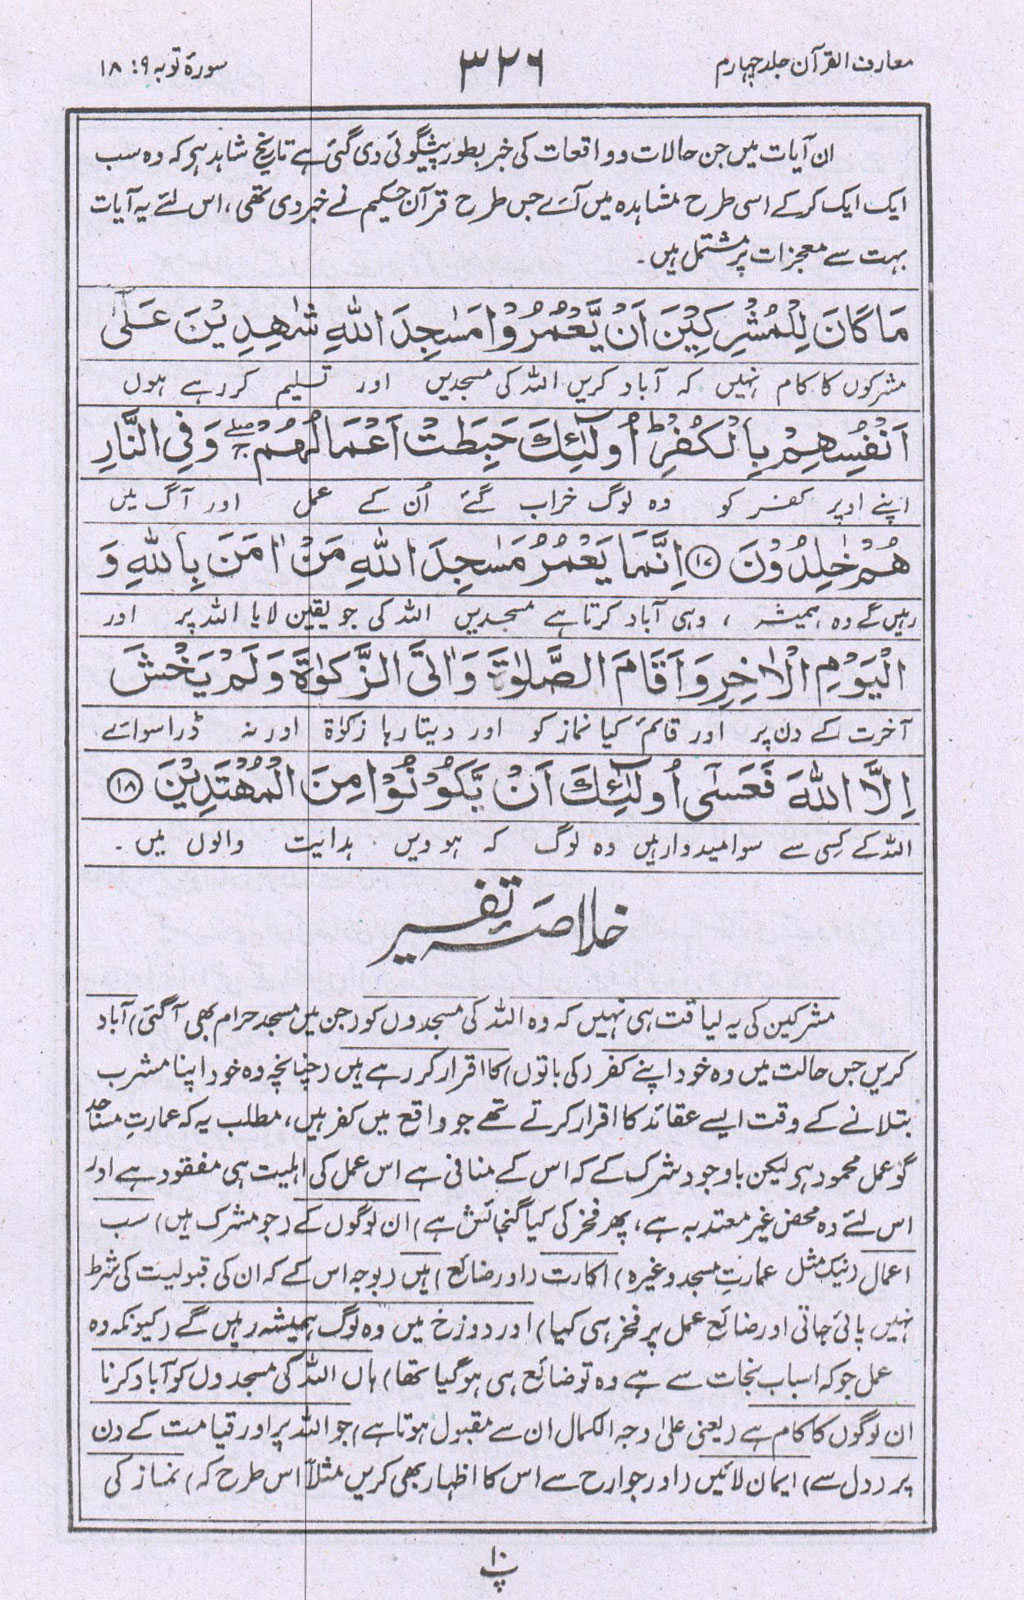 معارف القرآن جلد چہارم
۳۲۶
سورۂ توبہ ۹: ۱۸
ان آیات میں جن حالات و واقعات کی خبر بطور پیشگوئی دی گئی ہے تاریخ شاہد ہی کہ وہ سب
ایک ایک کرکے اسی طرح مشاہدہ میں آئے جس طرح قرآن حکیم نے خبر دی تھی، اس لئے یہ آیات
بہت سے معجزات پر مشتمل ہیں۔
مَا كَانَ لِلْمُشْرِكِيْنَ اَنْ يَّعْمُرُوْا مَسٰجِدَ اللّٰهِ شٰهِدِيْنَ عَلٰٓى
مشرکوں کا کام نہیں کہ آباد کریں اللہ کی مسجدیں اور تسلیم کر رہے ہوں
اَنْفُسِهِمْ بِالْكُفْرِ ؕ اُولٰٓئِكَ حَبِطَتْ اَعْمَالُهُمْ ۖۚ وَفِي النَّارِ
اپنے اوپر کفر کو وہ لوگ خراب گئے اُن کے عمل اور آگ میں
هُمْ خٰلِدُوْنَ ﴿۱۷﴾ اِنَّمَا يَعْمُرُ مَسٰجِدَ اللّٰهِ مَنْ اٰمَنَ بِاللّٰهِ وَ
رہیں گے وہ ہمیشہ ، وہی آباد کرتا ہے مسجدیں اللہ کی جو یقین لایا اللہ پر اور
الْيَوْمِ الْاٰخِرِ وَاَقَامَ الصَّلٰوةَ وَاٰتَى الزَّكٰوةَ وَلَمْ يَخْشَ
آخرت کے دن پر اور قائم کیا نماز کو اور دیتا رہا زکوٰۃ اور نہ ڈرا سوائے
اِلَّا اللّٰهَ فَعَسٰٓى اُولٰٓئِكَ اَنْ يَّكُوْنُوْا مِنَ الْمُهْتَدِيْنَ ﴿۱۸﴾
اللہ کے کسی سے سو امیدوار ہیں وہ لوگ کہ ہوویں ہدایت والوں میں۔
خلاصہ تفسیر
مشرکین کی یہ لیاقت ہی نہیں کہ وہ اللہ کی مسجدوں کو (جن میں مسجد حرام بھی آگئی) آباد
کریں جس حالت میں وہ خود اپنے کفر (کی باتوں) کا اقرار کر رہے ہیں (چنانچہ وہ خود اپنا مشرب
بتلانے کے وقت ایسے عقائد کا اقرار کرتے تھے جو واقع میں کفر ہیں، مطلب یہ کہ عمارتِ مساجد
گو عمل محمود ہی لیکن باوجود شرک کے کہ اس کے منافی ہے اس عمل کی اہلیت ہی مفقود ہے اور
اس لئے وہ محض غیر معتد بہ ہے، پھر فخر کی کیا گنجائش ہے) ان لوگوں کے (جو مشرک ہیں) سب
اعمال (نیک مثل عمارتِ مسجد وغیرہ) اکارت (اور ضائع) ہیں (بوجہ اس کے کہ ان کی قبولیت کی شرط
نہیں پائی جاتی اور ضائع عمل پر فخر ہی کیا) اور دوزخ میں وہ لوگ ہمیشہ رہیں گے (کیونکہ وہ
عمل جو کہ اسباب نجات سے ہے وہ تو ضائع ہی ہو گیا تھا) ہاں اللہ کی مسجدوں کو آباد کرنا
ان لوگوں کا کام ہے (یعنی علیٰ وجہ الکمال ان سے مقبول ہوتا ہے) جو اللہ پر اور قیامت کے دن
پر (دل سے) ایمان لائیں (اور جوارح سے اس کا اظہار بھی کریں مثلاً اس طرح کہ) نماز کی
۱۰
پ